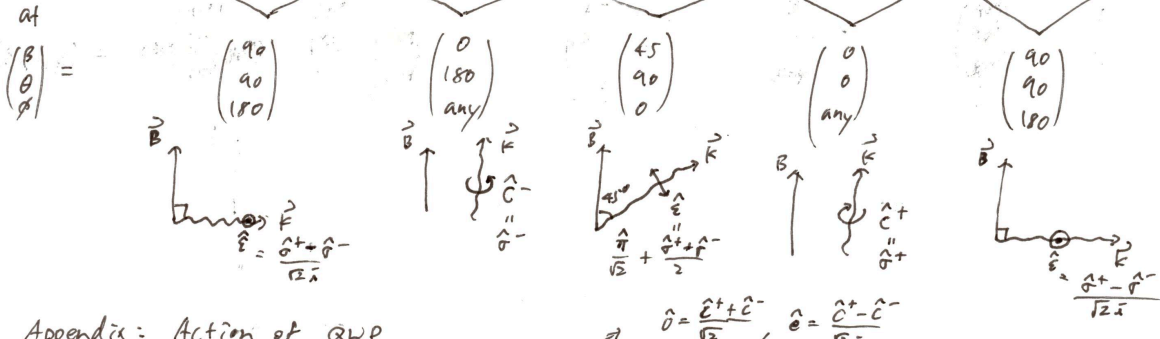 at
(β θ ϕ) = (90 90 180) (0 180 any) (45 90 0) (0 0 any) (90 90 180)
B⃗ k⃗ ε̂ = (σ̂⁺ - σ̂⁻)/(√2 i)
B⃗ k⃗ ĉ⁻ = σ̂⁻
B⃗ 45° k⃗ ε̂ = π̂/√2 + (σ̂⁺ + σ̂⁻)/2
B k⃗ ĉ⁺ = σ̂⁺
B⃗ k⃗ ε̂ = (σ̂⁺ - σ̂⁻)/(√2 i)
Appendix: Action of QWP
ô = (ĉ⁺ + ĉ⁻)/√2 , ê = (ĉ⁺ - ĉ⁻)/